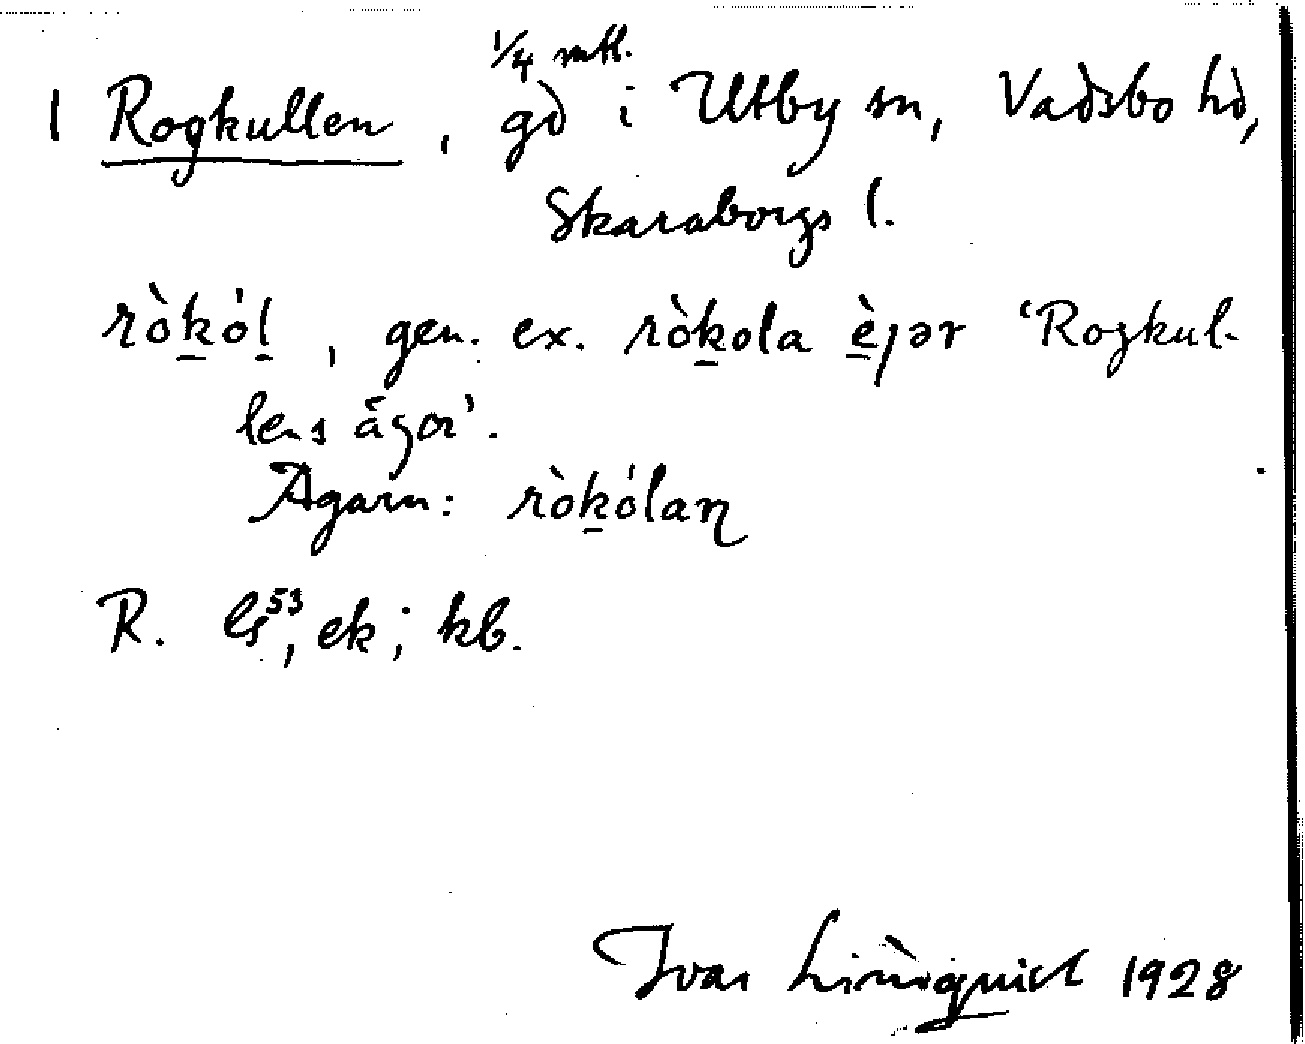 1/4 mtl.
1 Rogkullen, gd i Utby sn, Vadsbo hd,
Skaraborgs l.
ròkól, gen. ex. ròkola èjər 'Rogkul-
lens ägor'.
Ägarn: ròkólaɳ
R. Gs53, ek; kb.
Ivar Lindquist 1928